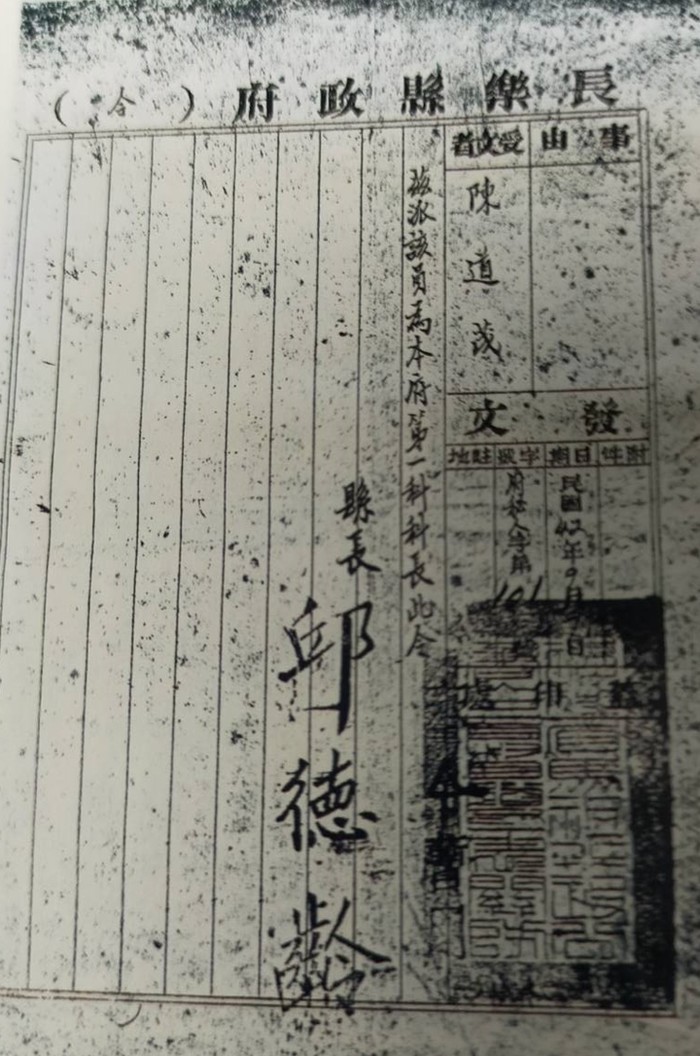 長樂縣政府（令）
事由
受文者
陳道茂
發文
附件
日期
字號
駐地
民國42年9月日
府秘人字第101
蓋印處
茲派該員為本府第一科科長此令
縣長
邱德齡